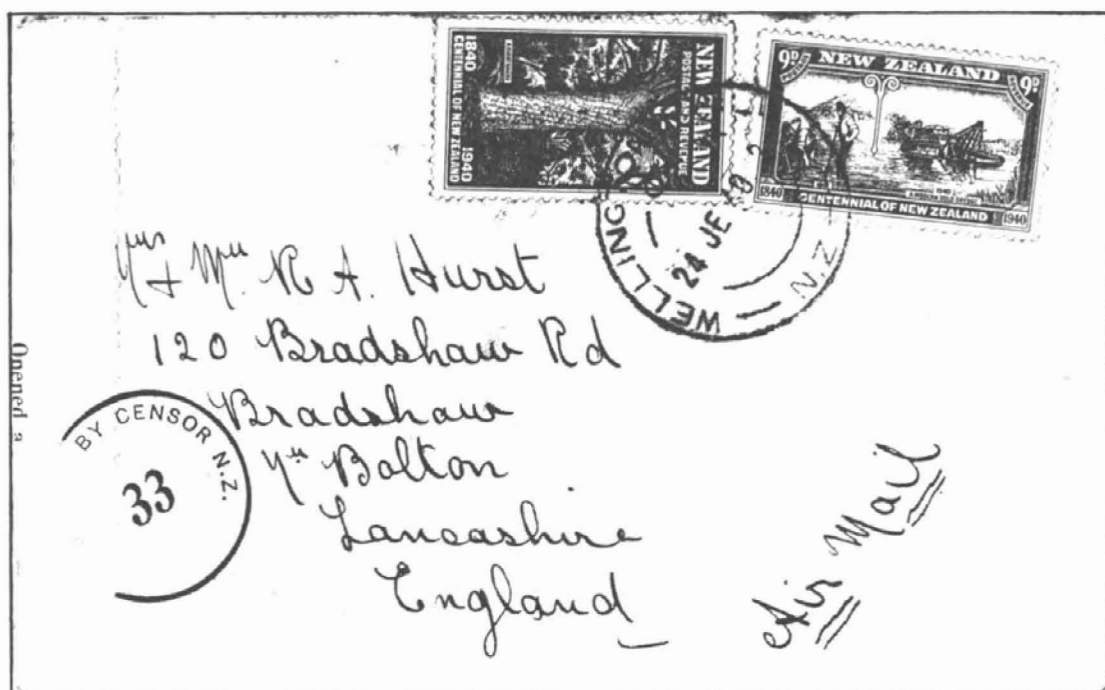 1840 1940
CENTENNIAL OF NEW ZEALAND
NEW ZEALAND
POSTAL AND REVENUE
9D NEW ZEALAND 9D
1840 CENTENNIAL OF NEW ZEALAND 1940
WELLINGTO
24 JE 40
N.Z
Mr & Mrs R A. Hurst
120 Bradshaw Rd
Bradshaw
Nr Bolton
Lancashire
England
Opened
BY CENSOR N.Z.
33
Air Mail